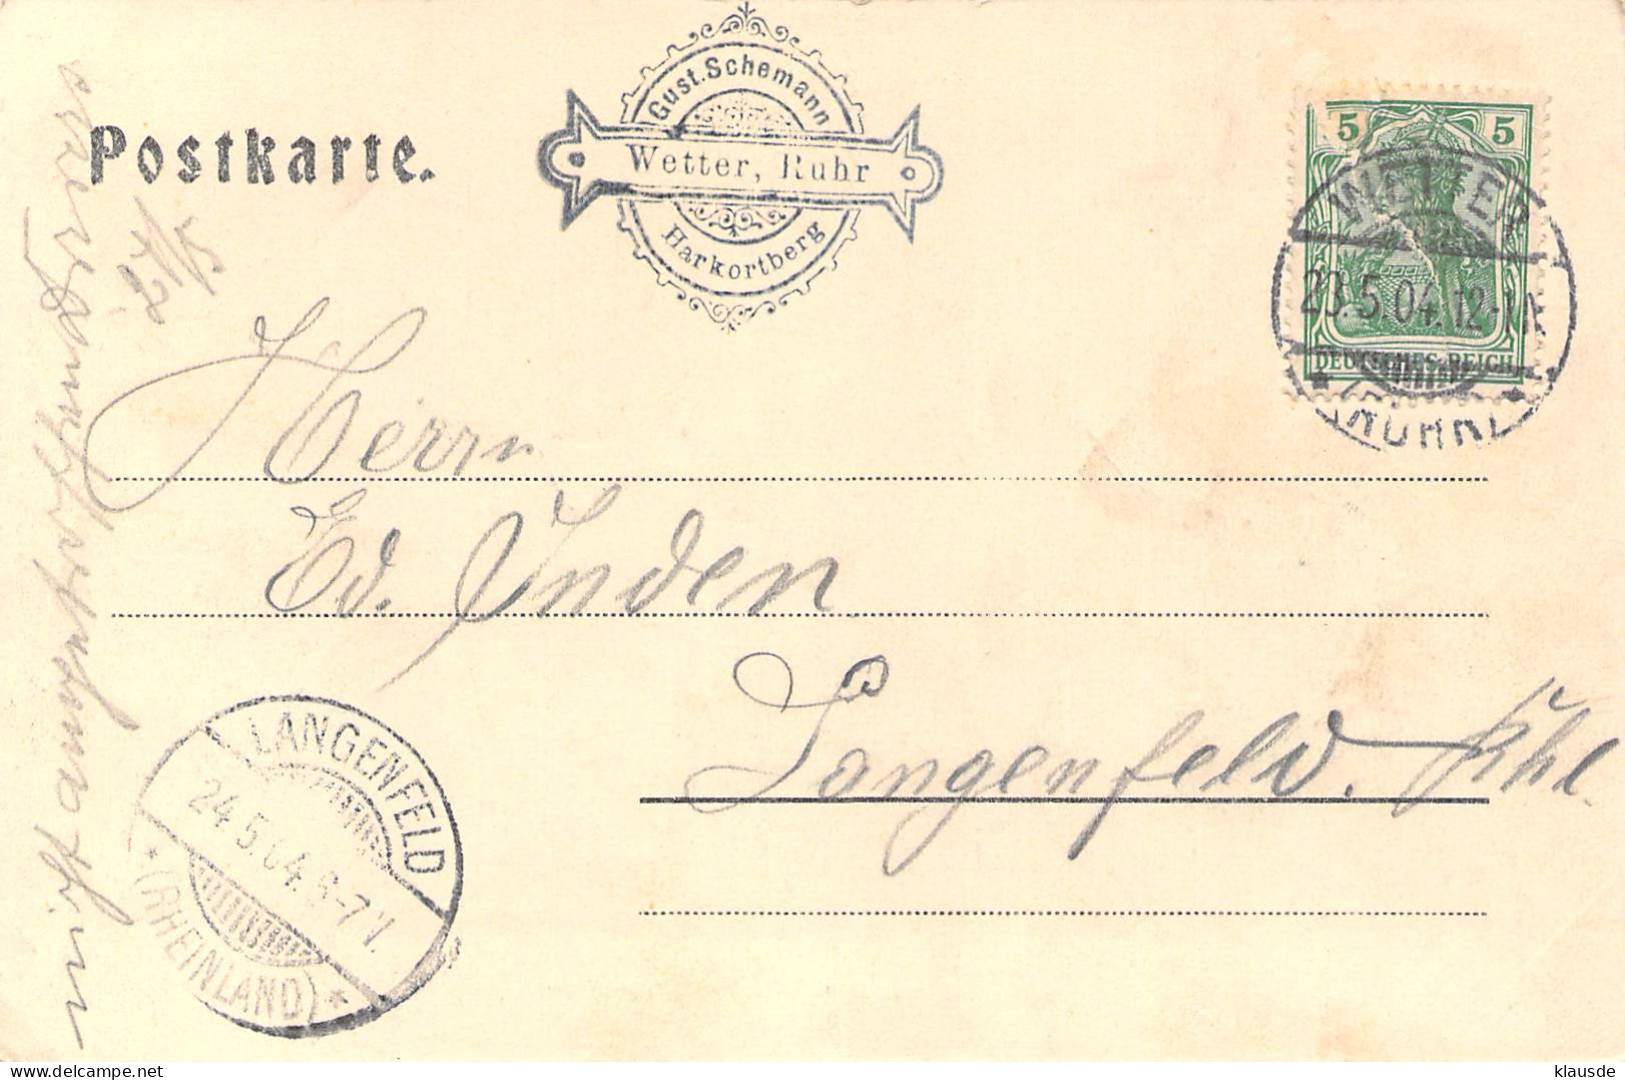 Postkarte.
Gust. Schemann
Wetter, Ruhr
Harkortberg
5 5
WETTER
23.5.04.12-1N
DEUTSCHES REICH
(RUHR)
Herrn
Ed. Inden
Langenfeld. Rhl.
LANGENFELD
24.5.04.6-7V.
(RHEINLAND)
klausde